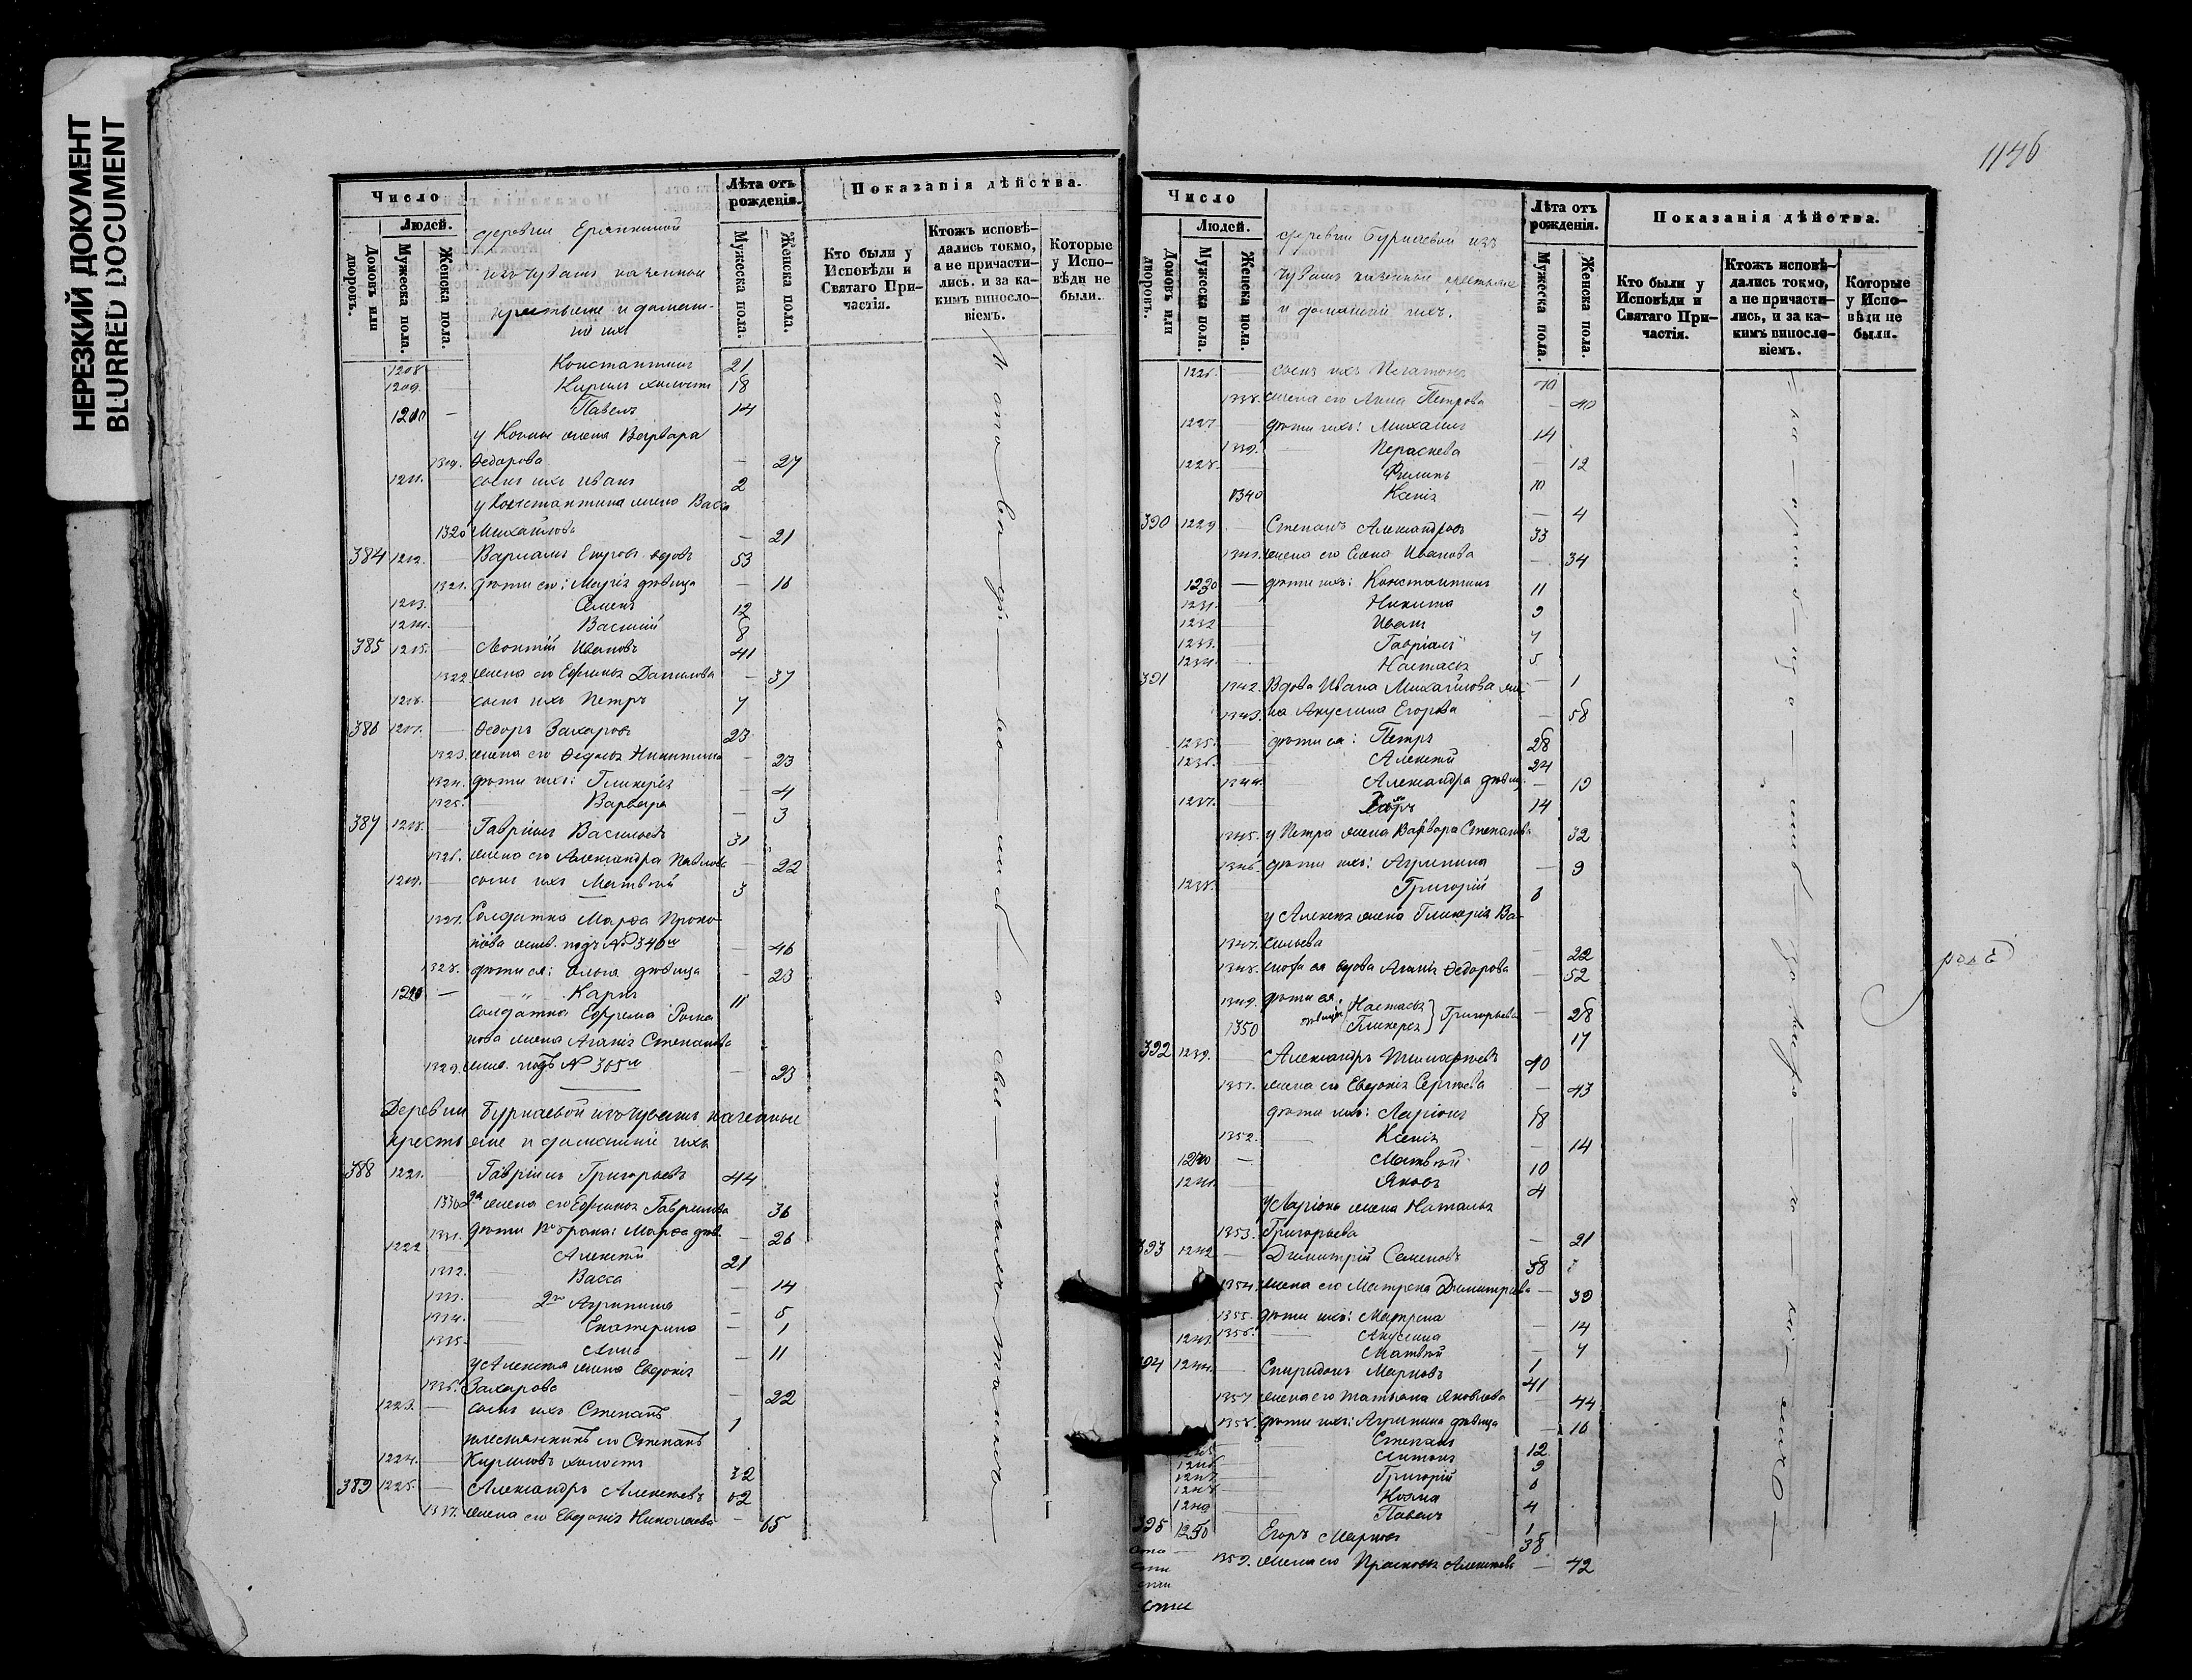 НЕРЕЗКИЙ ДОКУМЕНТ
BLURRED DOCUMENT
Число
Людей.
Домовъ или дворовъ.
Мужеска пола.
Женска пола.
деревни
изъ чувашъ казенные
крестьяне и домаш-
нiи ихъ
Лѣта отъ рожденiя.
Мужеска пола.
Женска пола.
Показанiя дѣйства.
Кто были у Исповѣди и Святаго Причастiя.
Ктожъ исповѣдались токмо, а не причастились. и за какимъ винословiемъ.
Которые у Исповѣди не были.
1208. Константинъ 21
1209. Кирилъ холостъ 18
1210 — Павелъ 14
у жена Варвара
1319. Ѳедорова — 27
1211. сынъ ихъ Иванъ 2
у Константина жена Васса
1320 Михайлова — 21
384 1212. Варламъ Егоровъ вдовъ 53
1321. дѣти его: Марiя дѣвица — 16
1213. Семенъ 12
1214. Василiй 8
385 1215. Леонтiй Ивановъ 41
1322 жена его Ефимья Данилова — 37
1216. сынъ ихъ Петръ 7
386 1217. Ѳедоръ Захаровъ 23
1323. жена его Никитина — 23
1324. дѣти ихъ: Гликерiя — 4
1325. Варвара — 3
387 1218. Гаврiилъ Васильевъ 31
1326. жена его Александра Павлова — 22
1219. сынъ ихъ Матвѣй 3
1327. Солдатка Марѳа Проко-
пiева жив. подъ № 346м — 46
1328. дѣти ея: Ольга дѣвица — 23
1220 — „ Карпъ 11
Солдатка Ефрема Рома
нова жена Агапiя Степанова
1329. жив. подъ № 365м — 23
Деревни Бурнаевой изъ чувашъ казенные
крестьяне и домашнiе ихъ
388 1221. Гаврiилъ Григорьевъ 44
1330 2я жена его Ефимья Гаврилова 36
1331. дѣти 1го брака: Марѳа дѣв. — 26
1222 Алексѣй 21
1332. Васса — 14
1333. 2го Агрипина — 5
1334. Екатерина — 1
1335. Анна — 11
у Алексѣя жена Евдокiя
1336. Захарова — 22
1223. сынъ ихъ Степанъ 1
племянникъ его Степанъ
1224. Кириловъ холостъ 22
389 1225. Александръ Алексѣевъ 62
1337. жена его Евдокiя Николаева — 65
1146
Число
Людей.
Домовъ или дворовъ.
Мужеска пола.
Женска пола.
деревни Бурнаевой изъ
чувашъ казенные крестьяне
и домашнiй ихъ.
Лѣта отъ рожденiя.
Мужеска пола.
Женска пола.
Показанiя дѣйства.
Кто были у Исповѣди и Святаго Причастiя.
Ктожъ исповѣдались токмо, а не причастились, и за какимъ винословiемъ.
Которые у Исповѣди не были.
1226. — сынъ ихъ Платонъ 40
1338. жена его Анна Петрова — 40
1227 дѣти ихъ: Михаилъ 14
1339. Пераскева — 12
1228. Филипъ 10
1340 Ксенiя — 4
390 1229 — Степанъ Александровъ 33
1341. жена его Елена Иванова — 34
1230 — дѣти ихъ: Константинъ 11
1231. Никита 9
1232 Иванъ 7
1233. Гаврiилъ 5
1234. Настасья
391 1342. Вдова Ивана Михайлова же — 1
1343. на Акулина Егорова — 58
1235. дѣти ея: Петръ 28
1236. Алексѣй 24
1344. Александра дѣвиц — 19
1237. 14
1345. у Петра жена Варвара Степанова 32
1346. дѣти ихъ: Агрипина — 9
1238. Григорiй 6
у Алексѣя жена Гликерiя Ва-
1347. сильева — 22
1348. сноха ея вдова Агапiя Ѳедорова — 52
1349. дѣти ея, дѣвицы Настасья } Григорьевы — 28
1350 Гликерья 17
392 1239. Александръ 40
1351. жена его Евдокiя Сергѣева — 43
дѣти ихъ: Ларiонъ 18
1352. Ксенiя — 14
1240 — Матвѣй 10
1241. Яковъ 4
У Ларiона жена Наталья
1353. Григорьева — 21
393 1242 — Димитрiй Семеновъ 38
1354. жена его Матрена Димитрiева — 39
1355. дѣти ихъ: Матрена — 14
1356. Акулина — 7
1243. Матвѣй 1
394 1244. Спиридонъ Марковъ 41
1357 жена его Татьяна Яковлева — 44
1358. дѣти ихъ: Агрипина дѣвица — 16
1245 Степанъ 12
1246 Антонъ 9
1247 Григорiй 6
1248 Козма 4
1249 Павелъ 1
395 1250 Егоръ Марковъ 38
1359. жена его Прасковья Алексѣева — 42